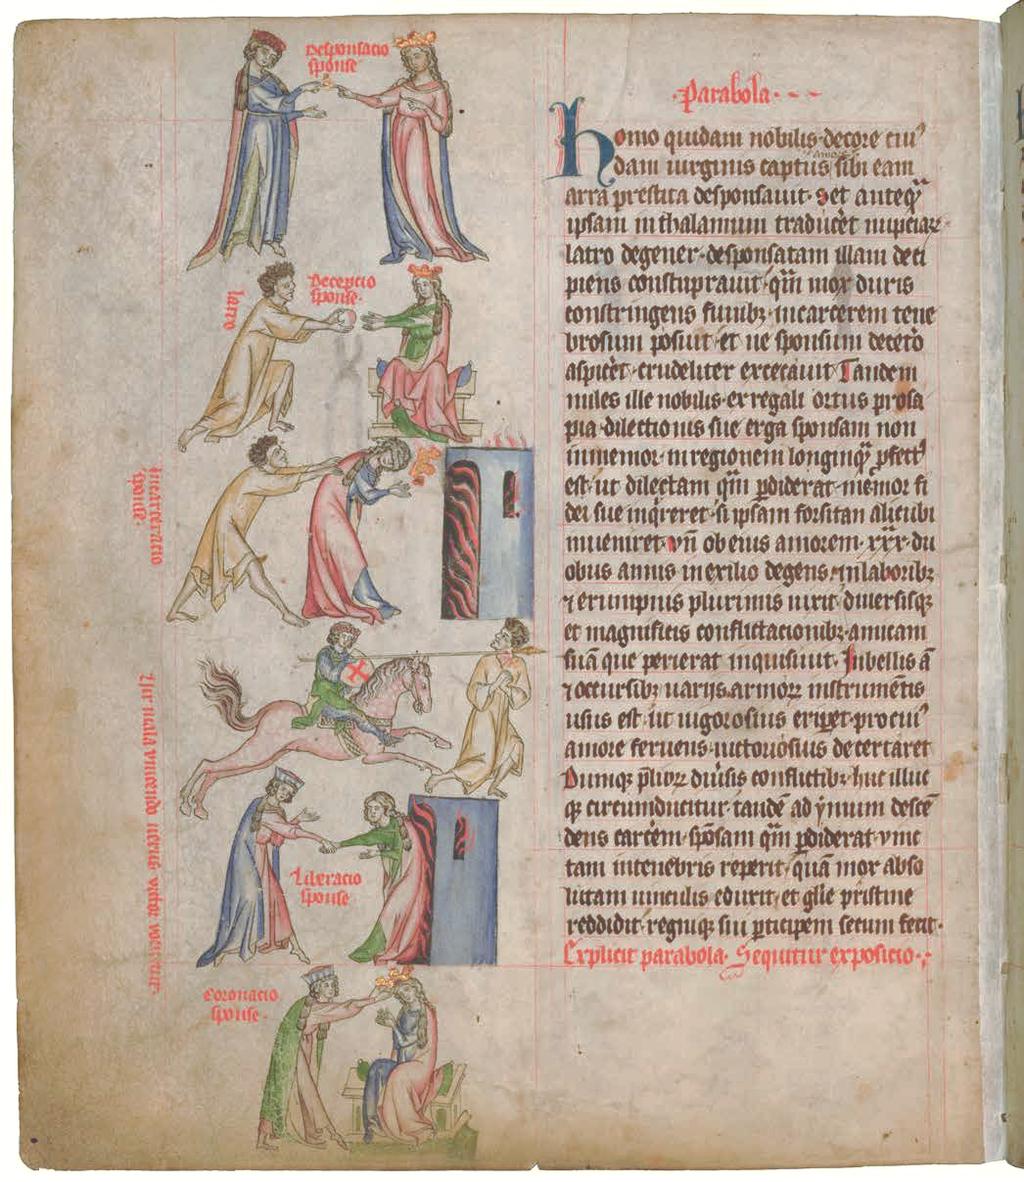 Desponsacio
sponse
Decepcio
sponse.
latro
Incarceracio
sponse.
Vir mala vincendo verus victor vocitatur.
Liberacio
sponse
Coronacio
sponse.
.Parabola.
homo quidam nobilis decore cui9
dam uirginis captus amore sibi eam
arra prestita desponsauit. set anteq̄
ipsam in thalamum traduc̄et nupciaꝝ
latro degener desponsatam illam deci
piens constuprauit qm̄ mox duris
constringens funibꝫ incarcerem tene
brosum posuit et ne sponsum decet̄o
aspic̄et crudeliter excecauit Tandem
miles ille nobilis ex regali ortus prosa
pia dilectionis sue erga sponsam non
inmemor in regionem longinq̄ ꝓfect9
est ut dilectam qm̄ ꝑdiderat memor fi
dei sue inq̄reret si ipsam forsitan alicubi
inueniret vn̄ ob eius amorem xxx du
obus annis in exilio degens in laboribꝫ
⁊ erumpnis plurimis uixit diuersisqꝫ
et magnificis conflictacionibꝫ amicam
suā que perierat inquisiuit. In bellis ā
⁊ occursibꝫ uarijs armoꝝ instrumētis
usus est ut uigorosius erip̄et pro cui9
amore feruens uictoriosius decertaret
Dumqꝫ p̄lioꝝ diūsis conflictibꝫ huc illuc
qꝫ circumducitur tandē ad ymum descē
dens carc̄em sponsam qm̄ ꝑdiderat vinc
tam in tenebris reperit quā mox abso
lutam uinculis eduxit et gl̄ie pristine
reddidit regniqꝫ sui ꝑticipem secum fecit.
Explicit parabola. Sequitur exposicio.